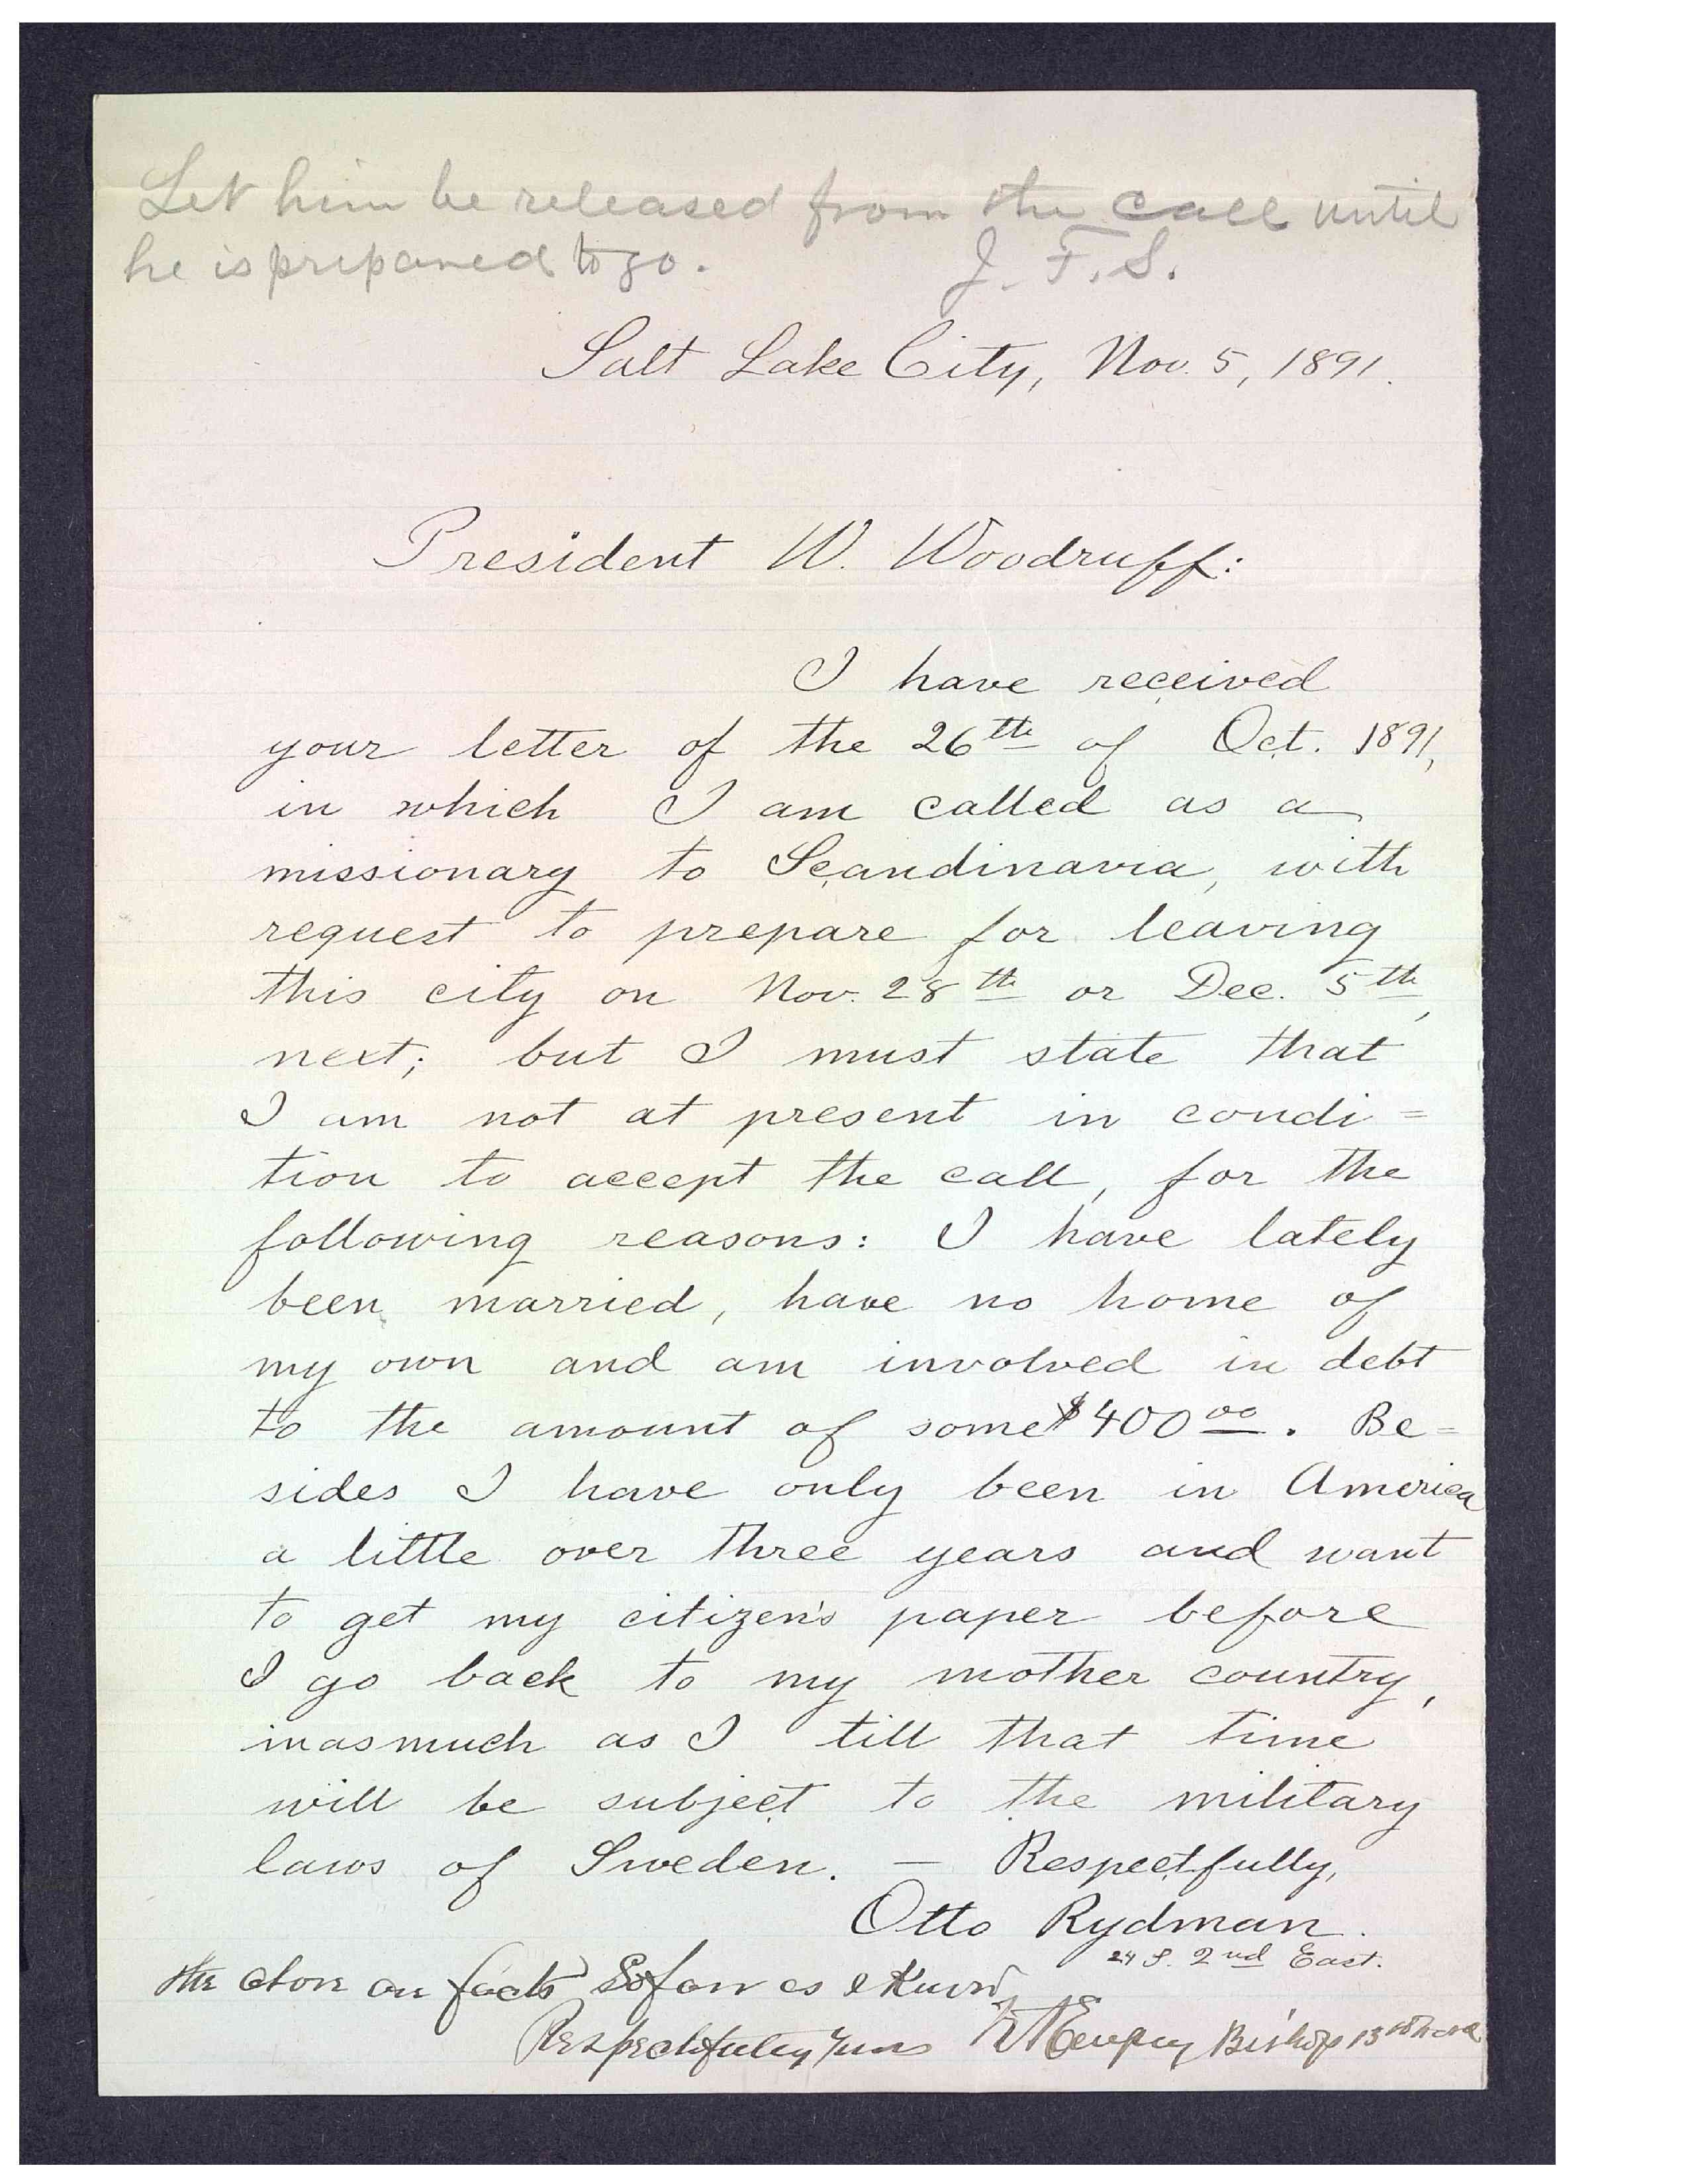 Let him be released from the call until
he is prepared to go. J. F. S.
Salt Lake City, Nov. 5, 1891.
President W. Woodruff:
I have received
your letter of the 26th of Oct. 1891,
in which I am called as a
missionary to Scandinavia, with
request to prepare for leaving
this city on Nov. 28th or Dec. 5th,
next; but I must state that
I am not at present in condi=
tion to accept the call, for the
following reasons: I have lately
been married, have no home of
my own and am involved in debt
to the amount of some $400 00. Be=
sides I have only been in America
a little over three years and want
to get my citizen's paper before
I go back to my mother country,
inasmuch as I till that time
will be subject to the military
laws of Sweden. — Respectfully,
Otto Rydman.
24 S. 2nd East.
the above are facts So far as I Know
Respectfuley yours Bishop 13th